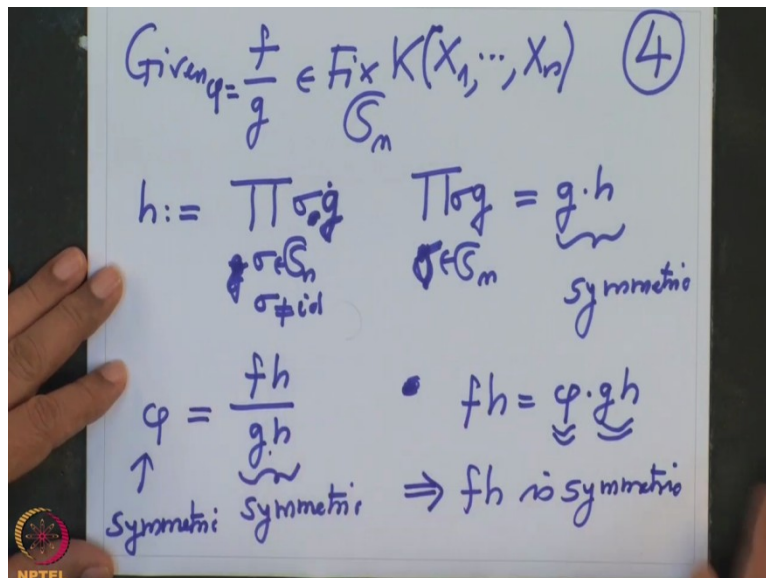 Given φ = f/g ∈ Fix_{𝔖_n} K(X_1, ..., X_n) ④
h := ∏_{σ∈𝔖_n, σ≠id} σ.g    ∏_{σ∈𝔖_n} σg = g·h
symmetric
φ = fh/g.h    fh = φ·gh
↑
symmetric symmetric ⇒ fh is symmetric
NPTEL